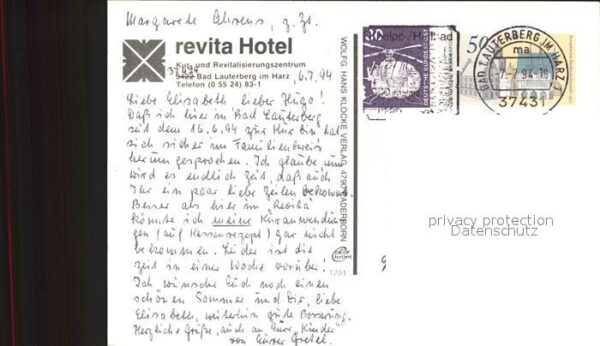 Margarete Ahrens, z. Zt.
revita Hotel
Kur- und Revitalisierungszentrum
37431
5422 Bad Lauterberg im Harz
Telefon (0 55 24) 83-1
6.7.94
Liebe Elisabeth, lieber Hugo!
Daß ich hier in Bad Lauterberg
seit dem 16.6.94 zur Kur bin hat
sich sicher im Familienkreis
herumgesprochen. Ich glaube nun
wird es endlich Zeit, daß auch
Ihr ein paar liebe Zeilen bekommt.
Besser als hier im "Revita"
könnte ich meine Kuranwendun-
gen (auf Kassenrezept) gar nicht
bekommen. Leider ist die
Zeit in einer Woche vorüber!
Ich wünsche Euch noch einen
schönen Sommer und Dir, liebe
Elisabeth, weiterhin gute Besserung.
Herzliche Grüße, auch an Eure "Kinder"
von Eurer Gretel.
WOLFG. HANS KLOCKE VERLAG, 4790 PADERBORN
1201
DEUTSCHE BUNDESPOST
50
BAD LAUTERBERG IM HARZ 1
ma
-7.-7.94-18
37431
privacy protection
Datenschutz